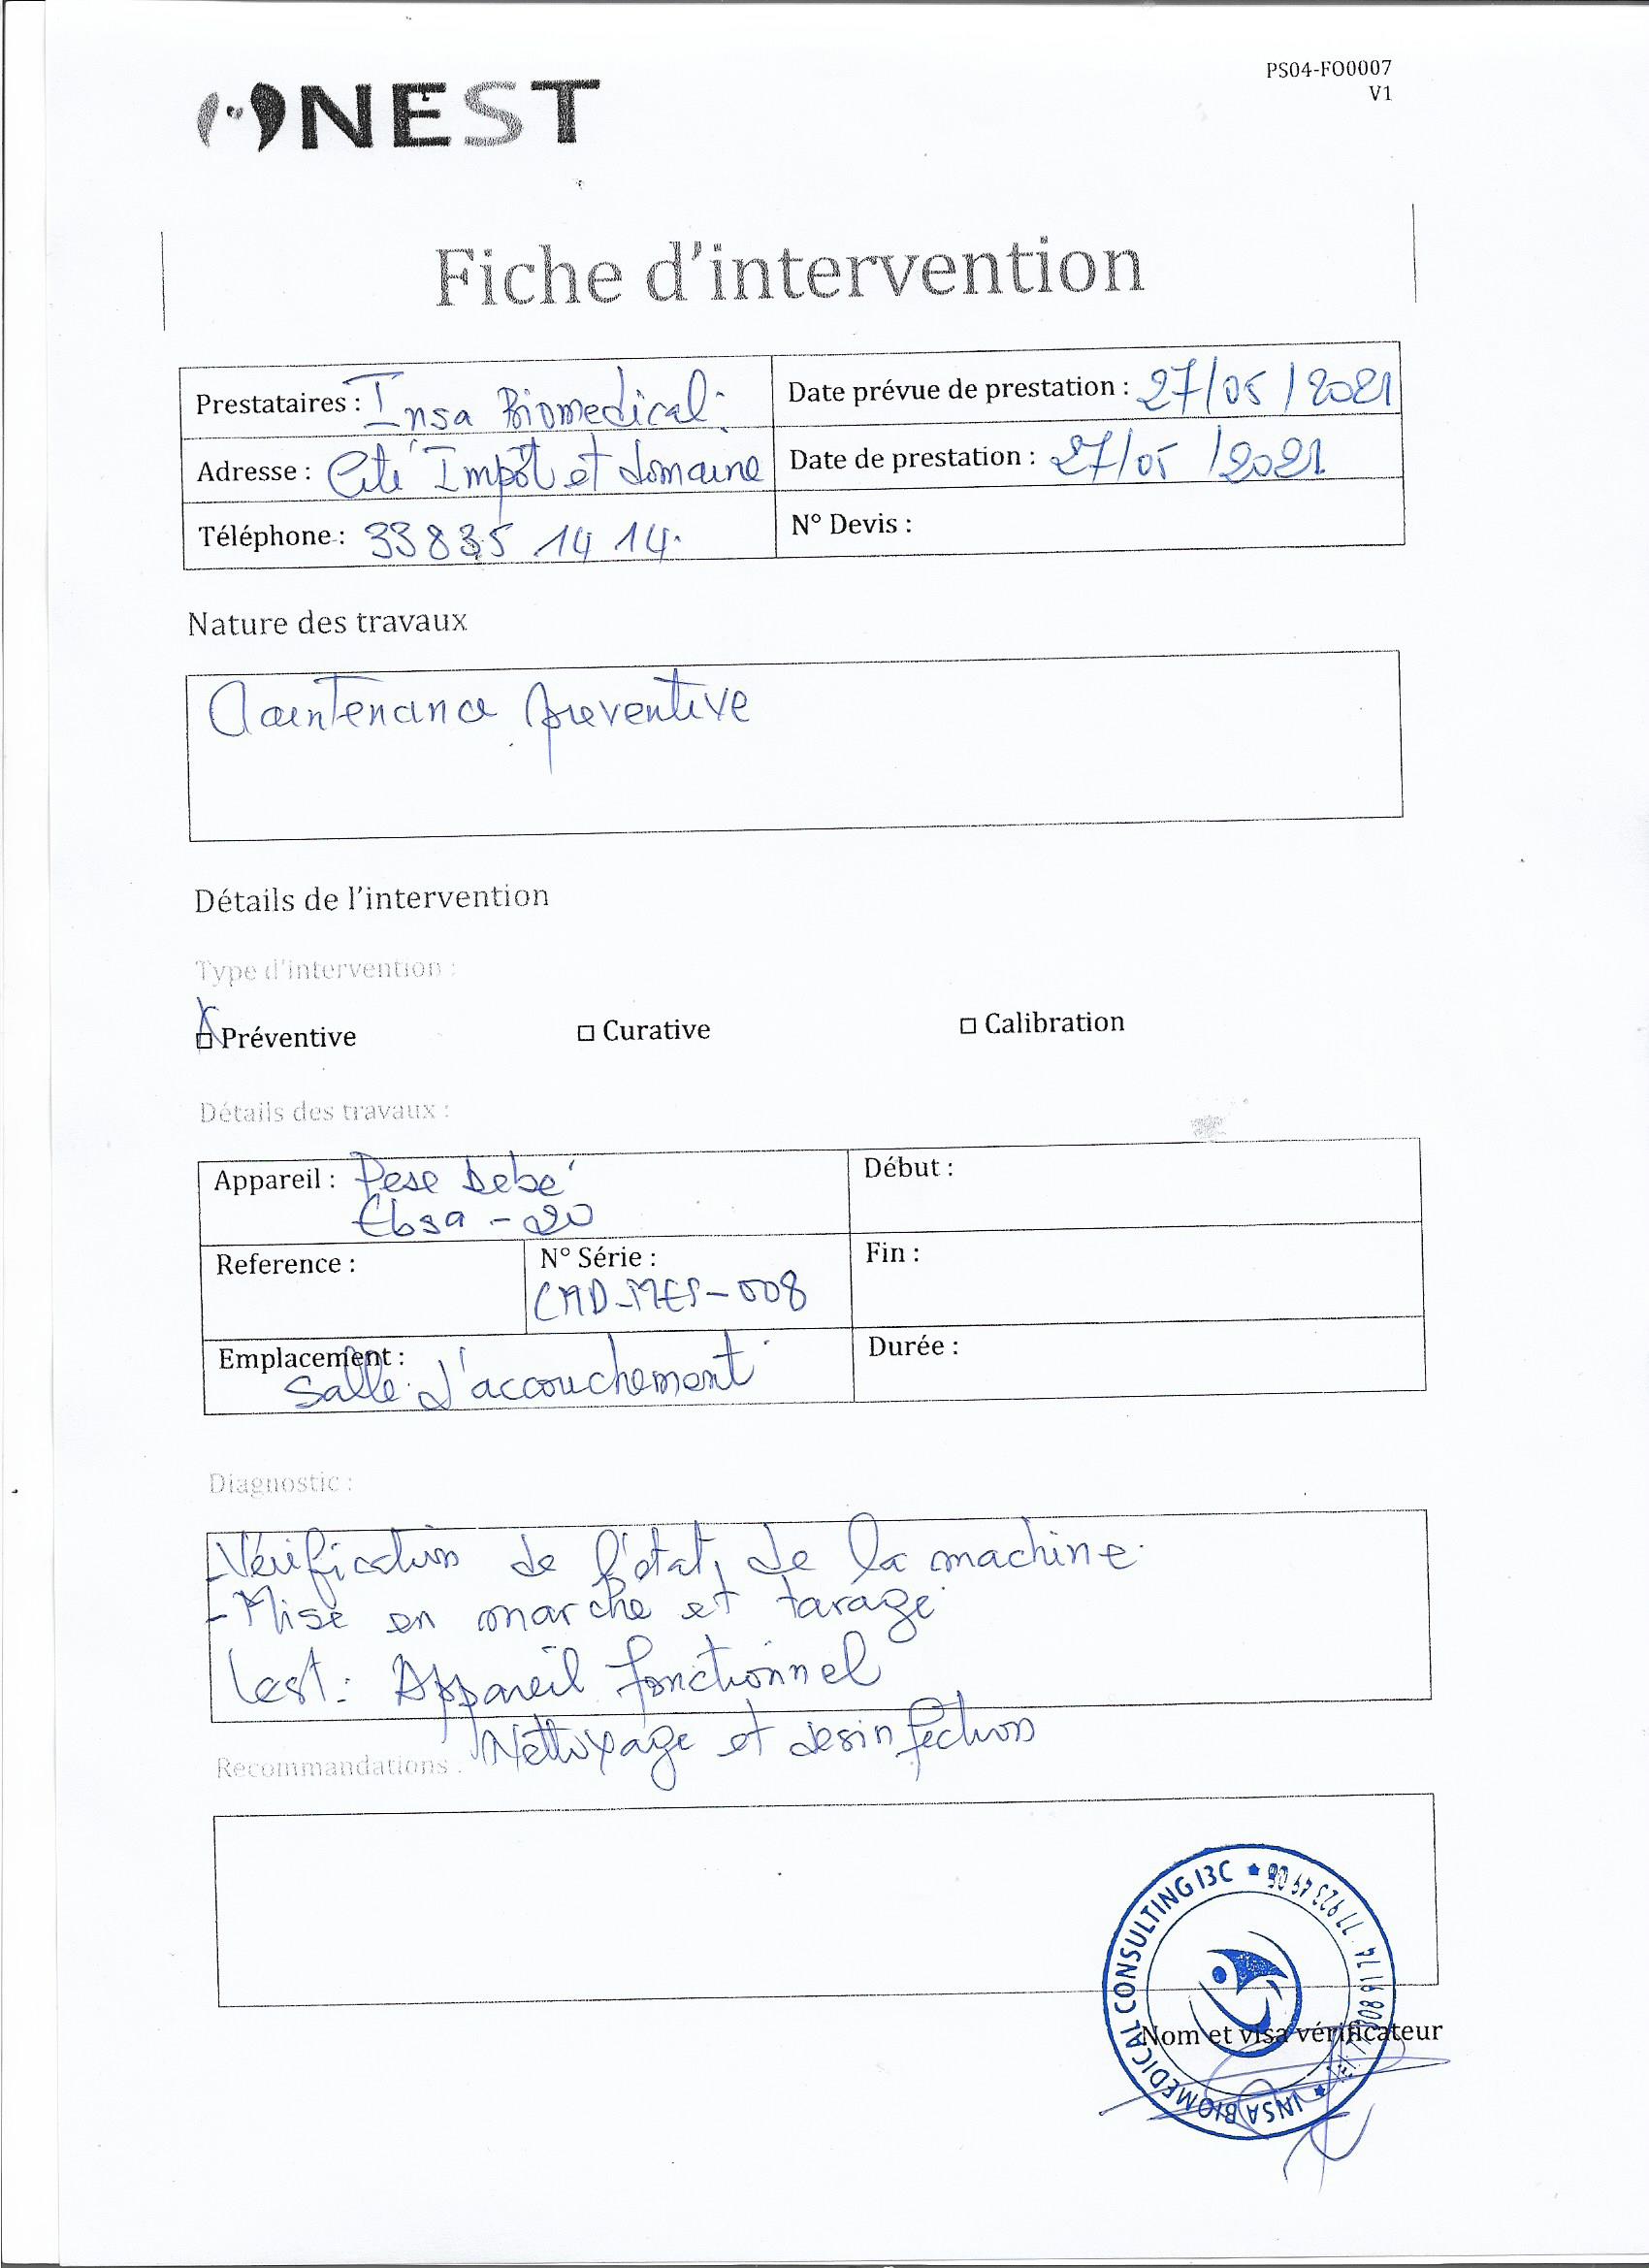 NEST
PS04-FO0007
V1
Fiche d'intervention
Prestataires : Insa Biomedical.
Date prévue de prestation : 27/05/2021
Adresse : Cité Impôt et domaine
Date de prestation : 27/05/2021
Téléphone : 33 835 14 14.
N° Devis :
Nature des travaux
Maintenance preventive
Détails de l'intervention
Type d'intervention :
Préventive
□ Curative
□ Calibration
Détails des travaux :
Appareil : Pese bebé
Ebsa - 20
Début :
Reference :
N° Série :
CMD-MES-008
Fin :
Emplacement :
Salle d'accouchement
Durée :
Diagnostic :
- Vérification de l'état de la machine.
- Mise en marche et tarage
Test : Appareil fonctionnel
Nettoyage et desinfection
Recommandations :
INSA BIOMEDICAL CONSULTING I3C
Tel: 77 308 91 74 - 77 923 49 06
Nom et visa vérificateur